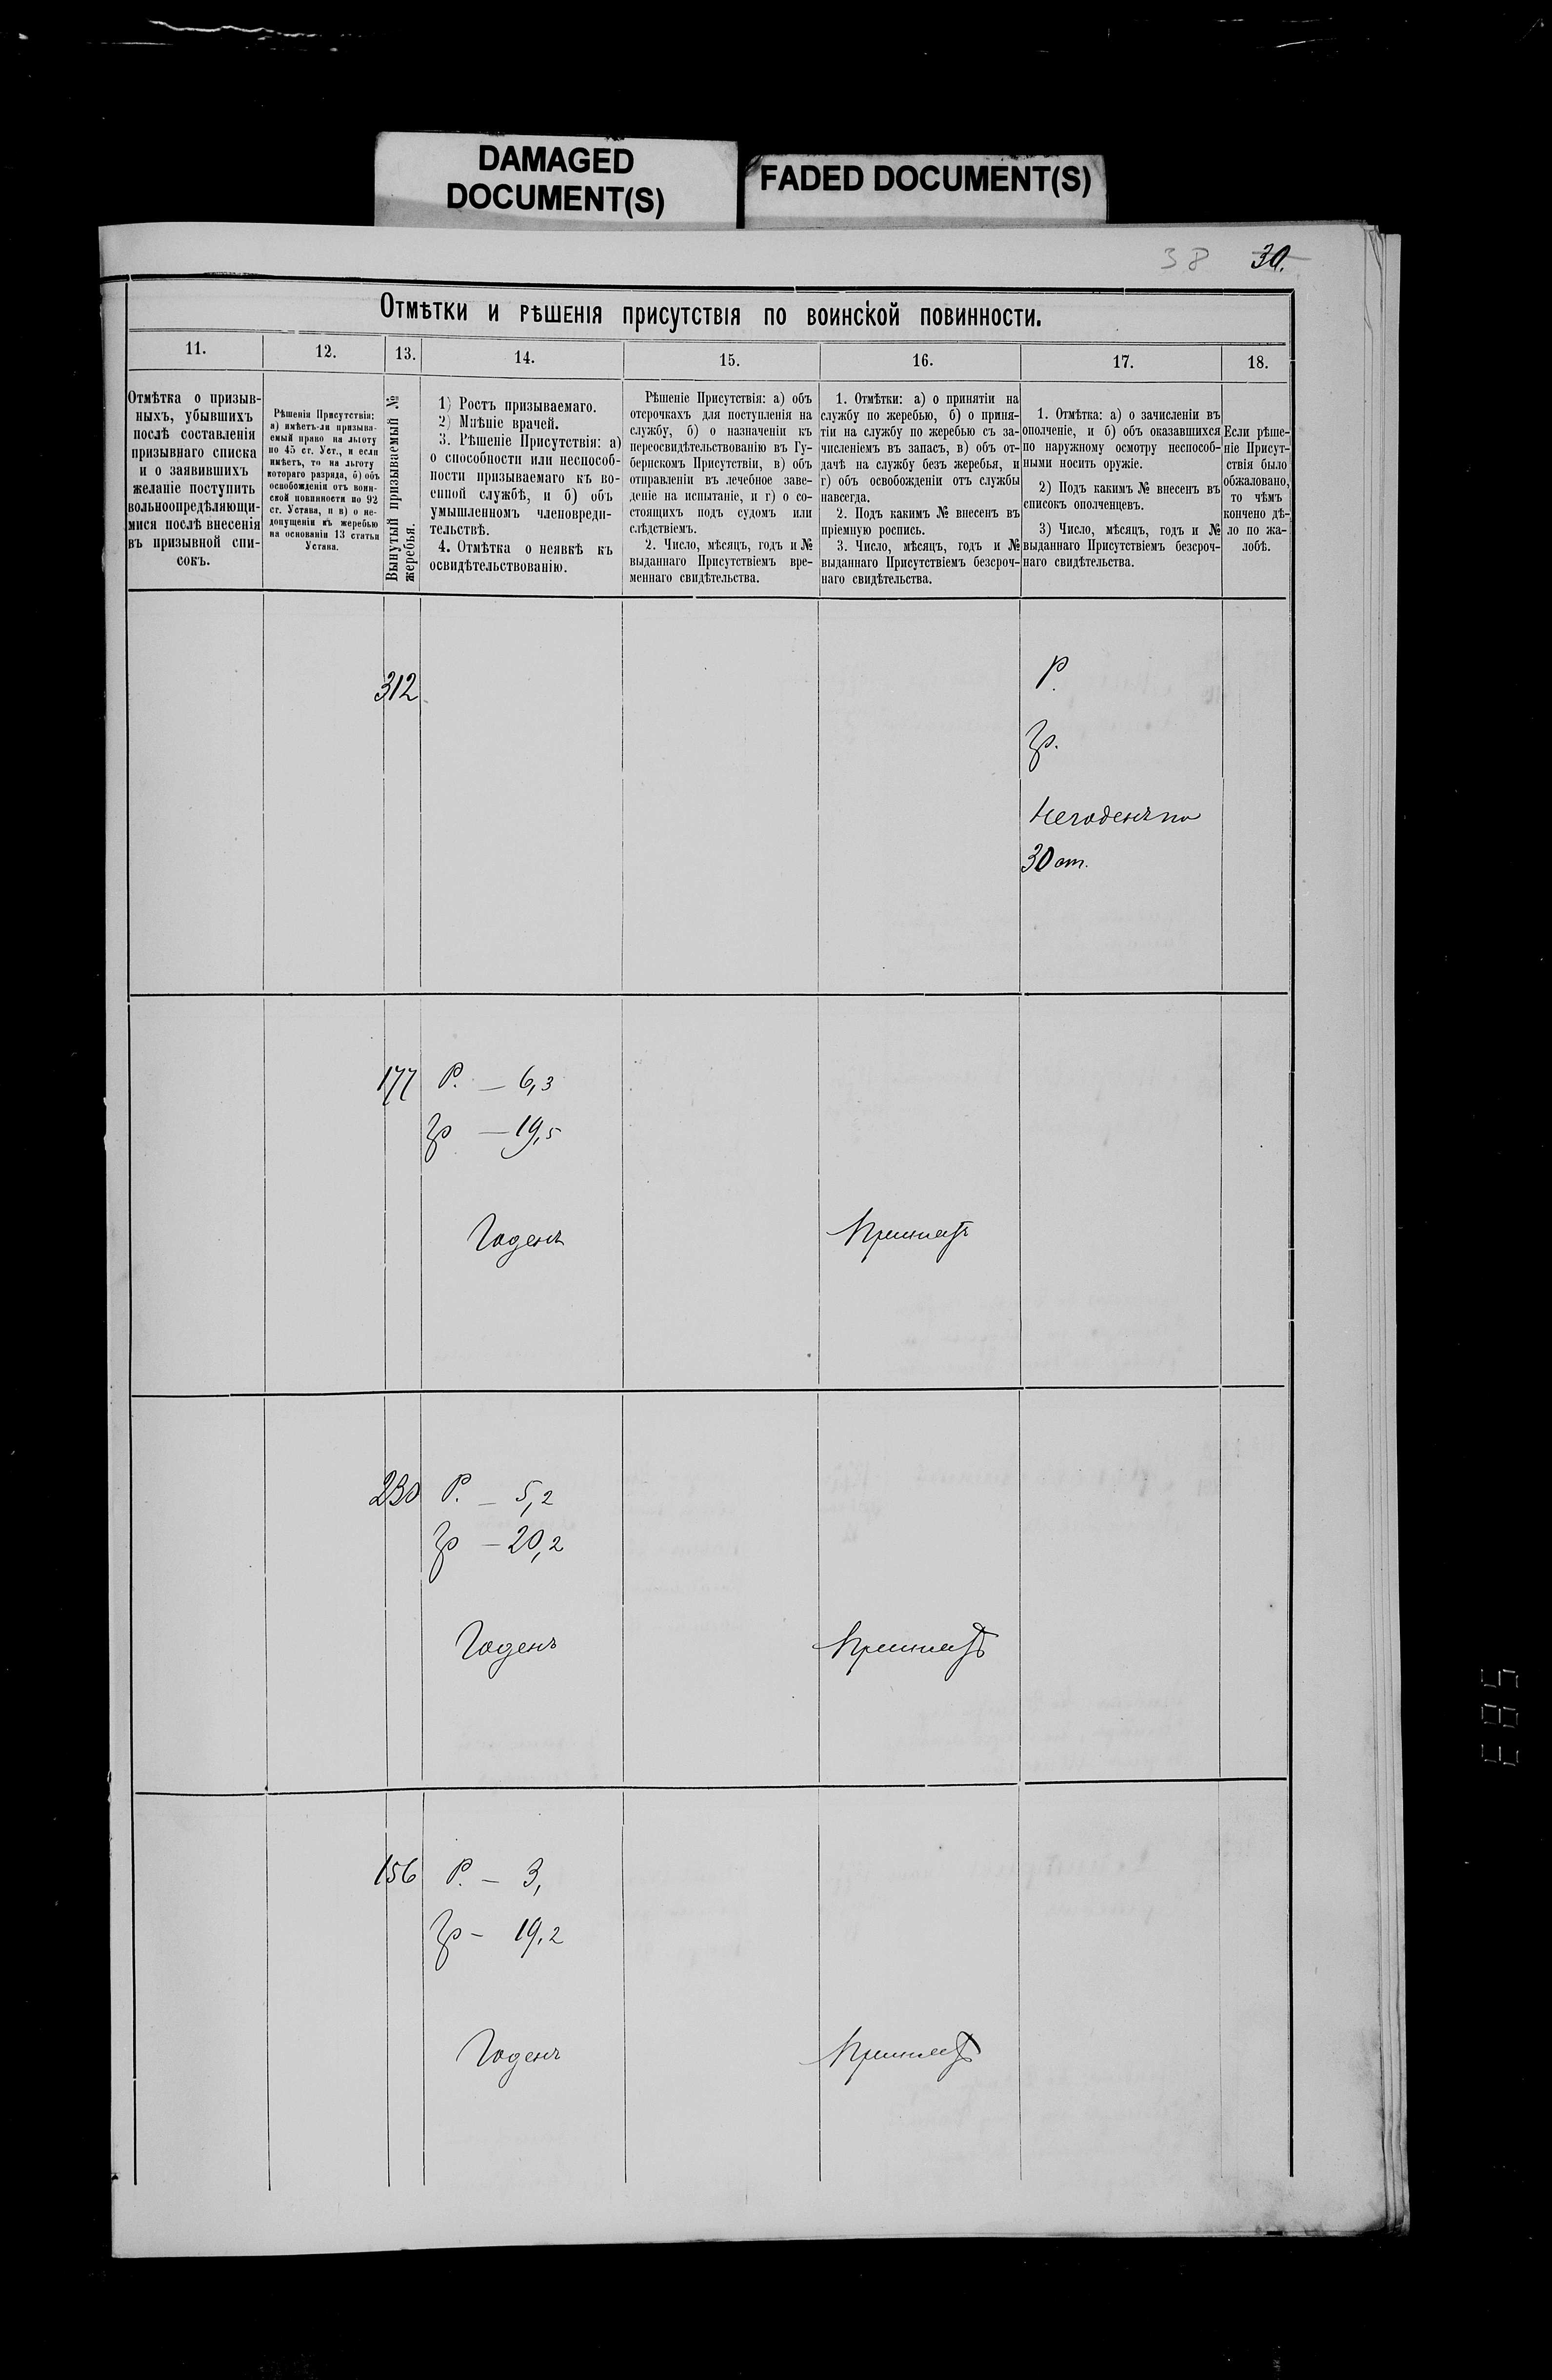 DAMAGED
DOCUMENT(S)
FADED DOCUMENT(S)
38 30.
Отмѣтки и рѣшенія присутствія по воинской повинности.
11. 12. 13. 14. 15. 16. 17. 18.
Отмѣтка о призыв-
ныхъ, убывшихъ
послѣ составленія
призывнаго списка
и о заявившихъ
желаніе поступить
вольноопредѣляющи-
мися послѣ внесенія
въ призывной спи-
сокъ.
Рѣшенія Присутствія:
а) имѣетъ-ли призыва-
емый право на льготу
по 45 ст. Уст., и если
имѣетъ, то на льготу
котораго разряда, б) объ
освобожденіи отъ воин-
ской повинности по 92
ст. Устава, и в) о не-
допущеніи къ жеребью
на основаніи 13 статьи
Устава.
Вынутый призываемый №
жеребья.
1) Ростъ призываемаго.
2) Мнѣніе врачей.
3. Рѣшеніе Присутствія: а)
о способности или неспособ-
ности призываемаго къ во-
енной службѣ, и б) объ
умышленномъ членовреди-
тельствѣ.
4. Отмѣтка о неявкѣ къ
освидѣтельствованію.
Рѣшеніе Присутствія: а) объ
отсрочкахъ для поступленія на
службу, б) о назначеніи къ
переосвидѣтельствованію въ Гу-
бернскомъ Присутствіи, в) объ
отправленіи въ лечебное заве-
деніе на испытаніе, и г) о со-
стоящихъ подъ судомъ или
слѣдствіемъ.
2. Число, мѣсяцъ, годъ и №
выданнаго Присутствіемъ вре-
меннаго свидѣтельства.
1. Отмѣтки: а) о принятіи на
службу по жеребью, б) о приня-
тіи на службу по жеребью съ за-
численіемъ въ запасъ, в) объ от-
дачѣ на службу безъ жеребья, и
г) объ освобожденіи отъ службы
навсегда.
2. Подъ какимъ № внесенъ въ
пріемную роспись.
3. Число, мѣсяцъ, годъ и №
выданнаго Присутствіемъ безсроч-
наго свидѣтельства.
1. Отмѣтка: а) о зачисленіи въ
ополченіе, и б) объ оказавшихся
по наружному осмотру неспособ-
ными носить оружіе.
2) Подъ какимъ № внесенъ въ
списокъ ополченцевъ.
3) Число, мѣсяцъ, годъ и №
выданнаго Присутствіемъ безсроч-
наго свидѣтельства.
Если рѣше-
ніе Присут-
ствія было
обжаловано,
то чѣмъ
кончено дѣ-
ло по жа-
лобѣ.
312 Р.
Гр.
Негоденъ по
30 ст.
177 Р. — 6,3
Гр — 19,5
Годенъ Принятъ
230 Р. — 5,2
Гр — 20,2
Годенъ Принятъ
156 Р. — 3,
Гр — 19,2
Годенъ Принятъ
583